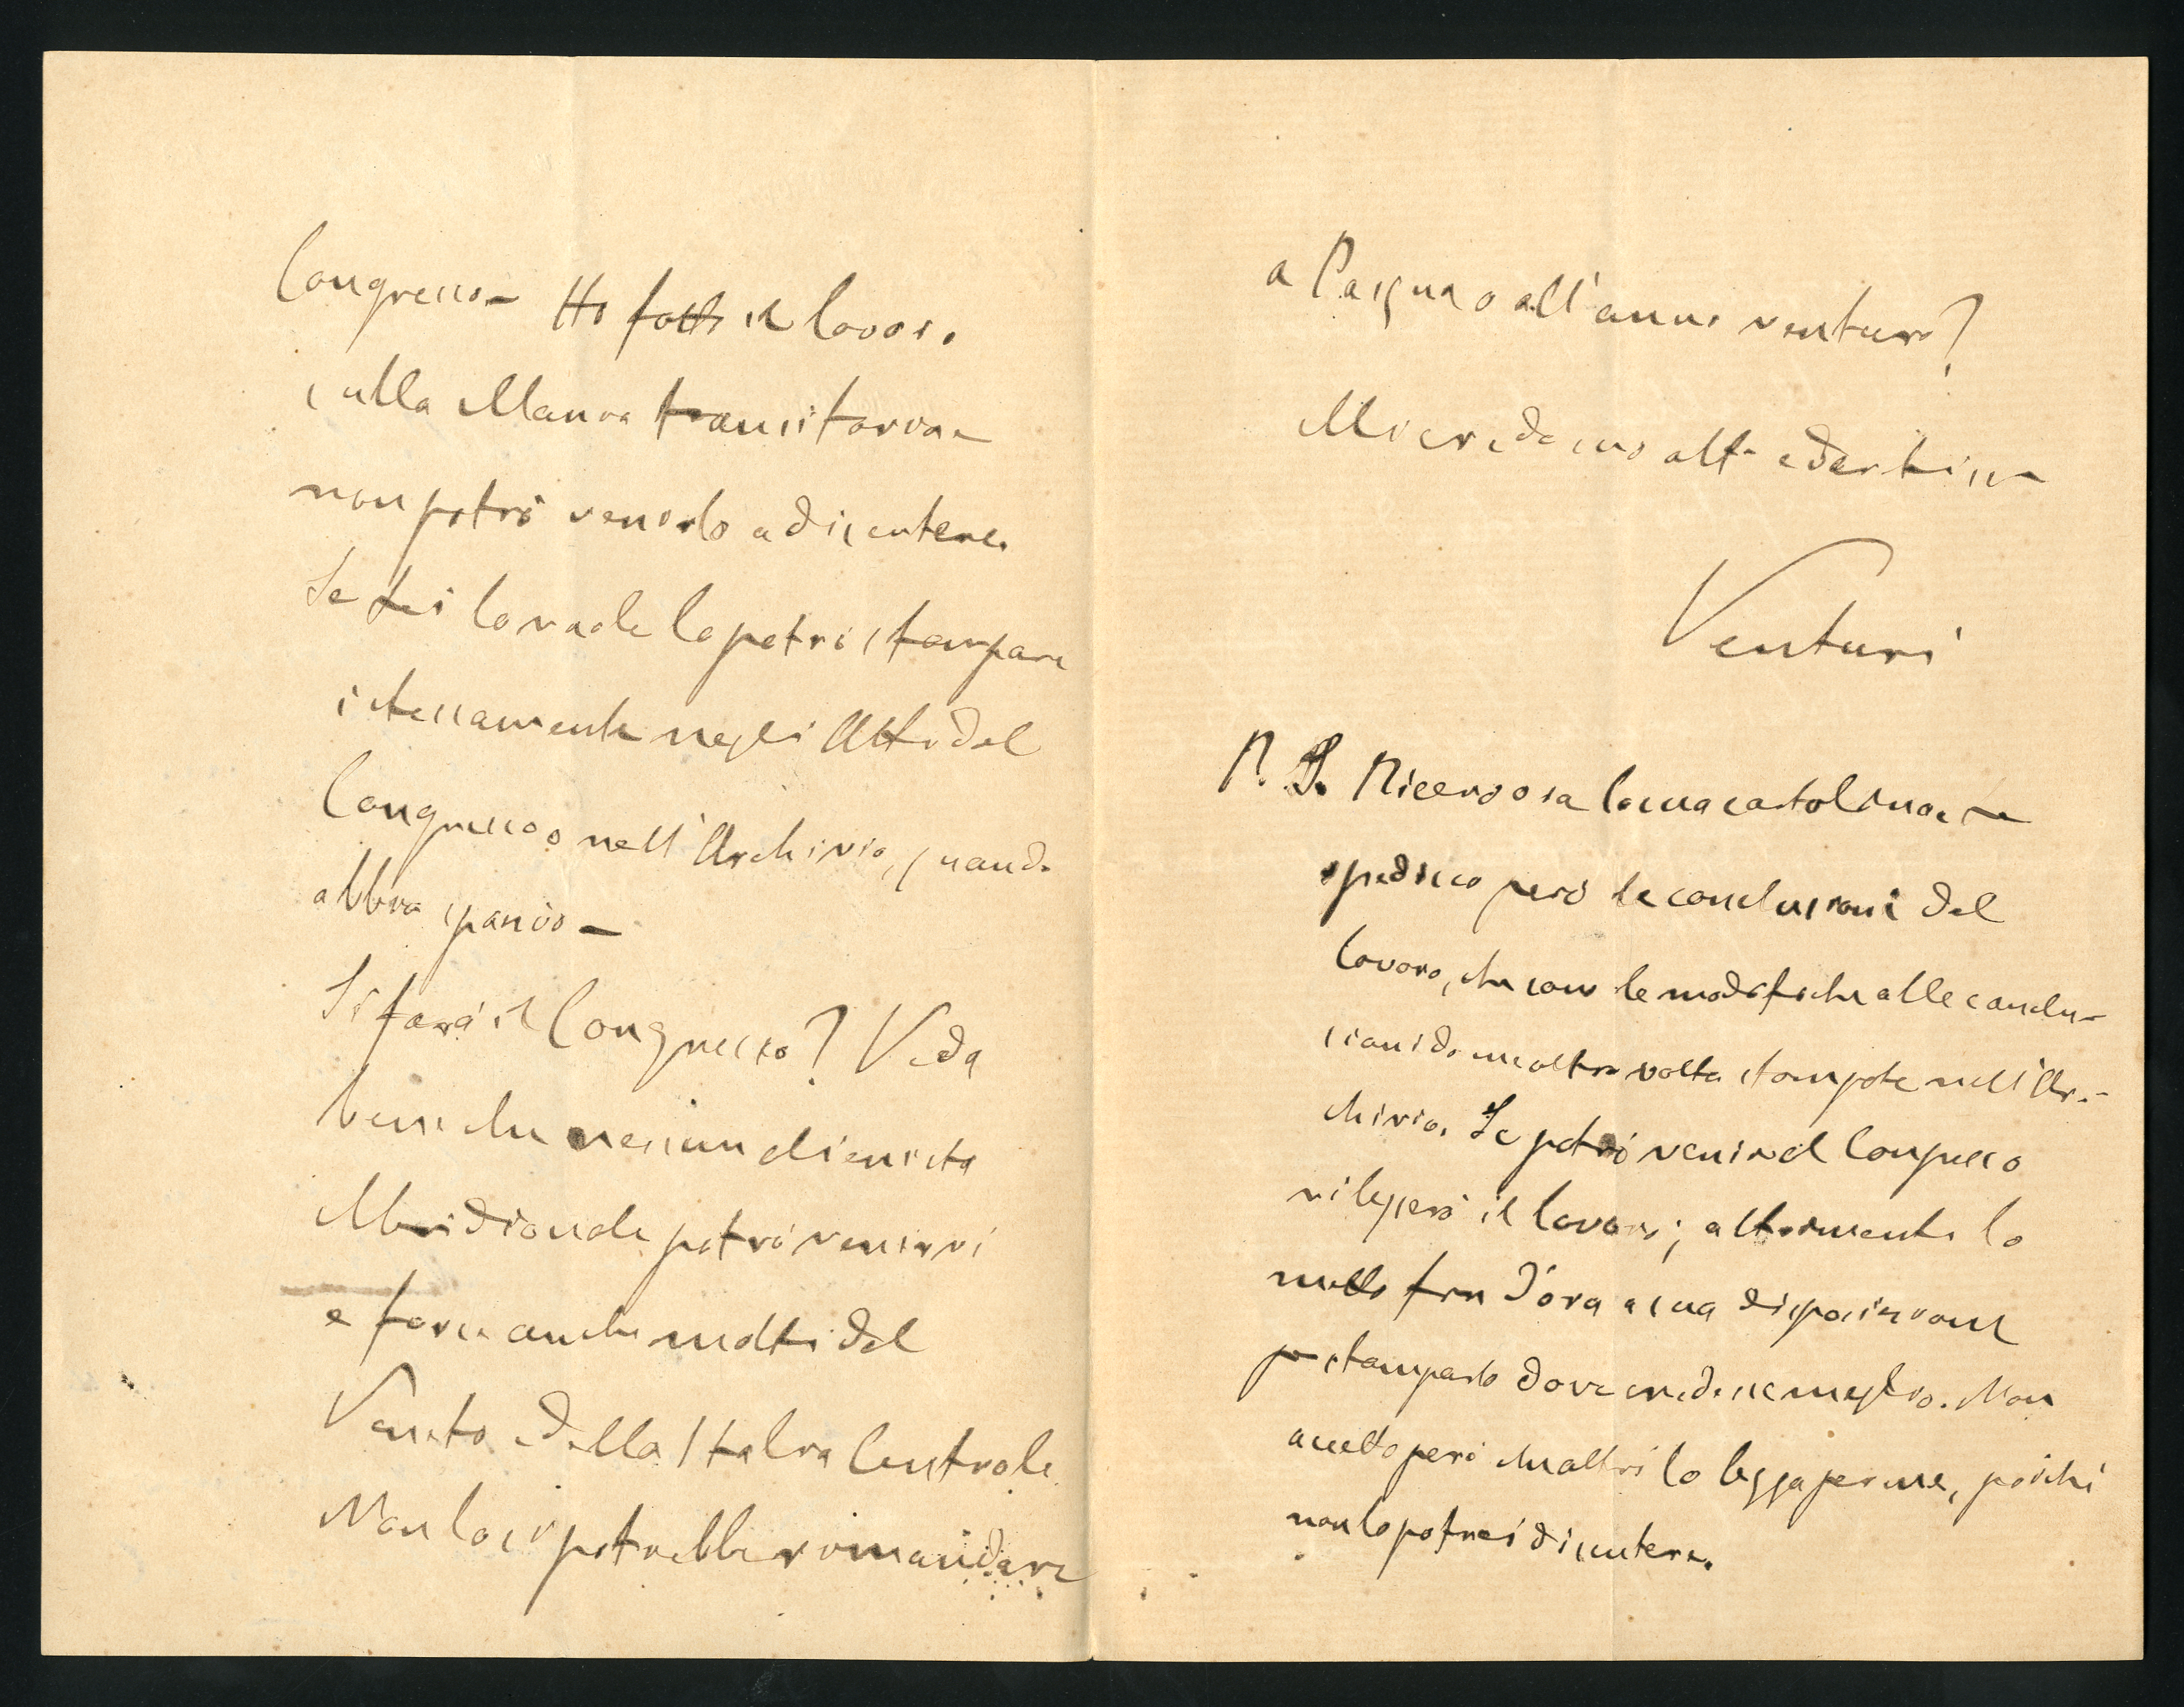 Congresso - Ho fatto il lavoro
sulla Mania transitoria -
non potrò venirlo a discutere.
Se Lei lo vuole lo potrà stampare
istessamente negli Atti del
Congresso o nell'Archivio, quando
abbia spazio -
Si farà il Congresso? Veda
bene che nessun alienista
Meridionale potrà venirvi
e forse anche molti del
Veneto e della Italia Centrale.
Non lo si potrebbe rimandare
a Pasqua o all'anno venturo?
Mi creda suo aff.o
Venturi
P. S. Ricevo ora la sua cartolina. -
spedisco però le conclusioni del
lavoro, che sono le modifiche alle conclu-
sioni da me altra volta stampate nell'Ar-
chivio. Se potrò venire al Congresso
vi leggerò il lavoro; altrimenti lo
metto fin d'ora a sua disposizione
per stamparlo dove credesse meglio. Non
accetto però che altri lo legga per me, poichè
non lo potrei discutere.